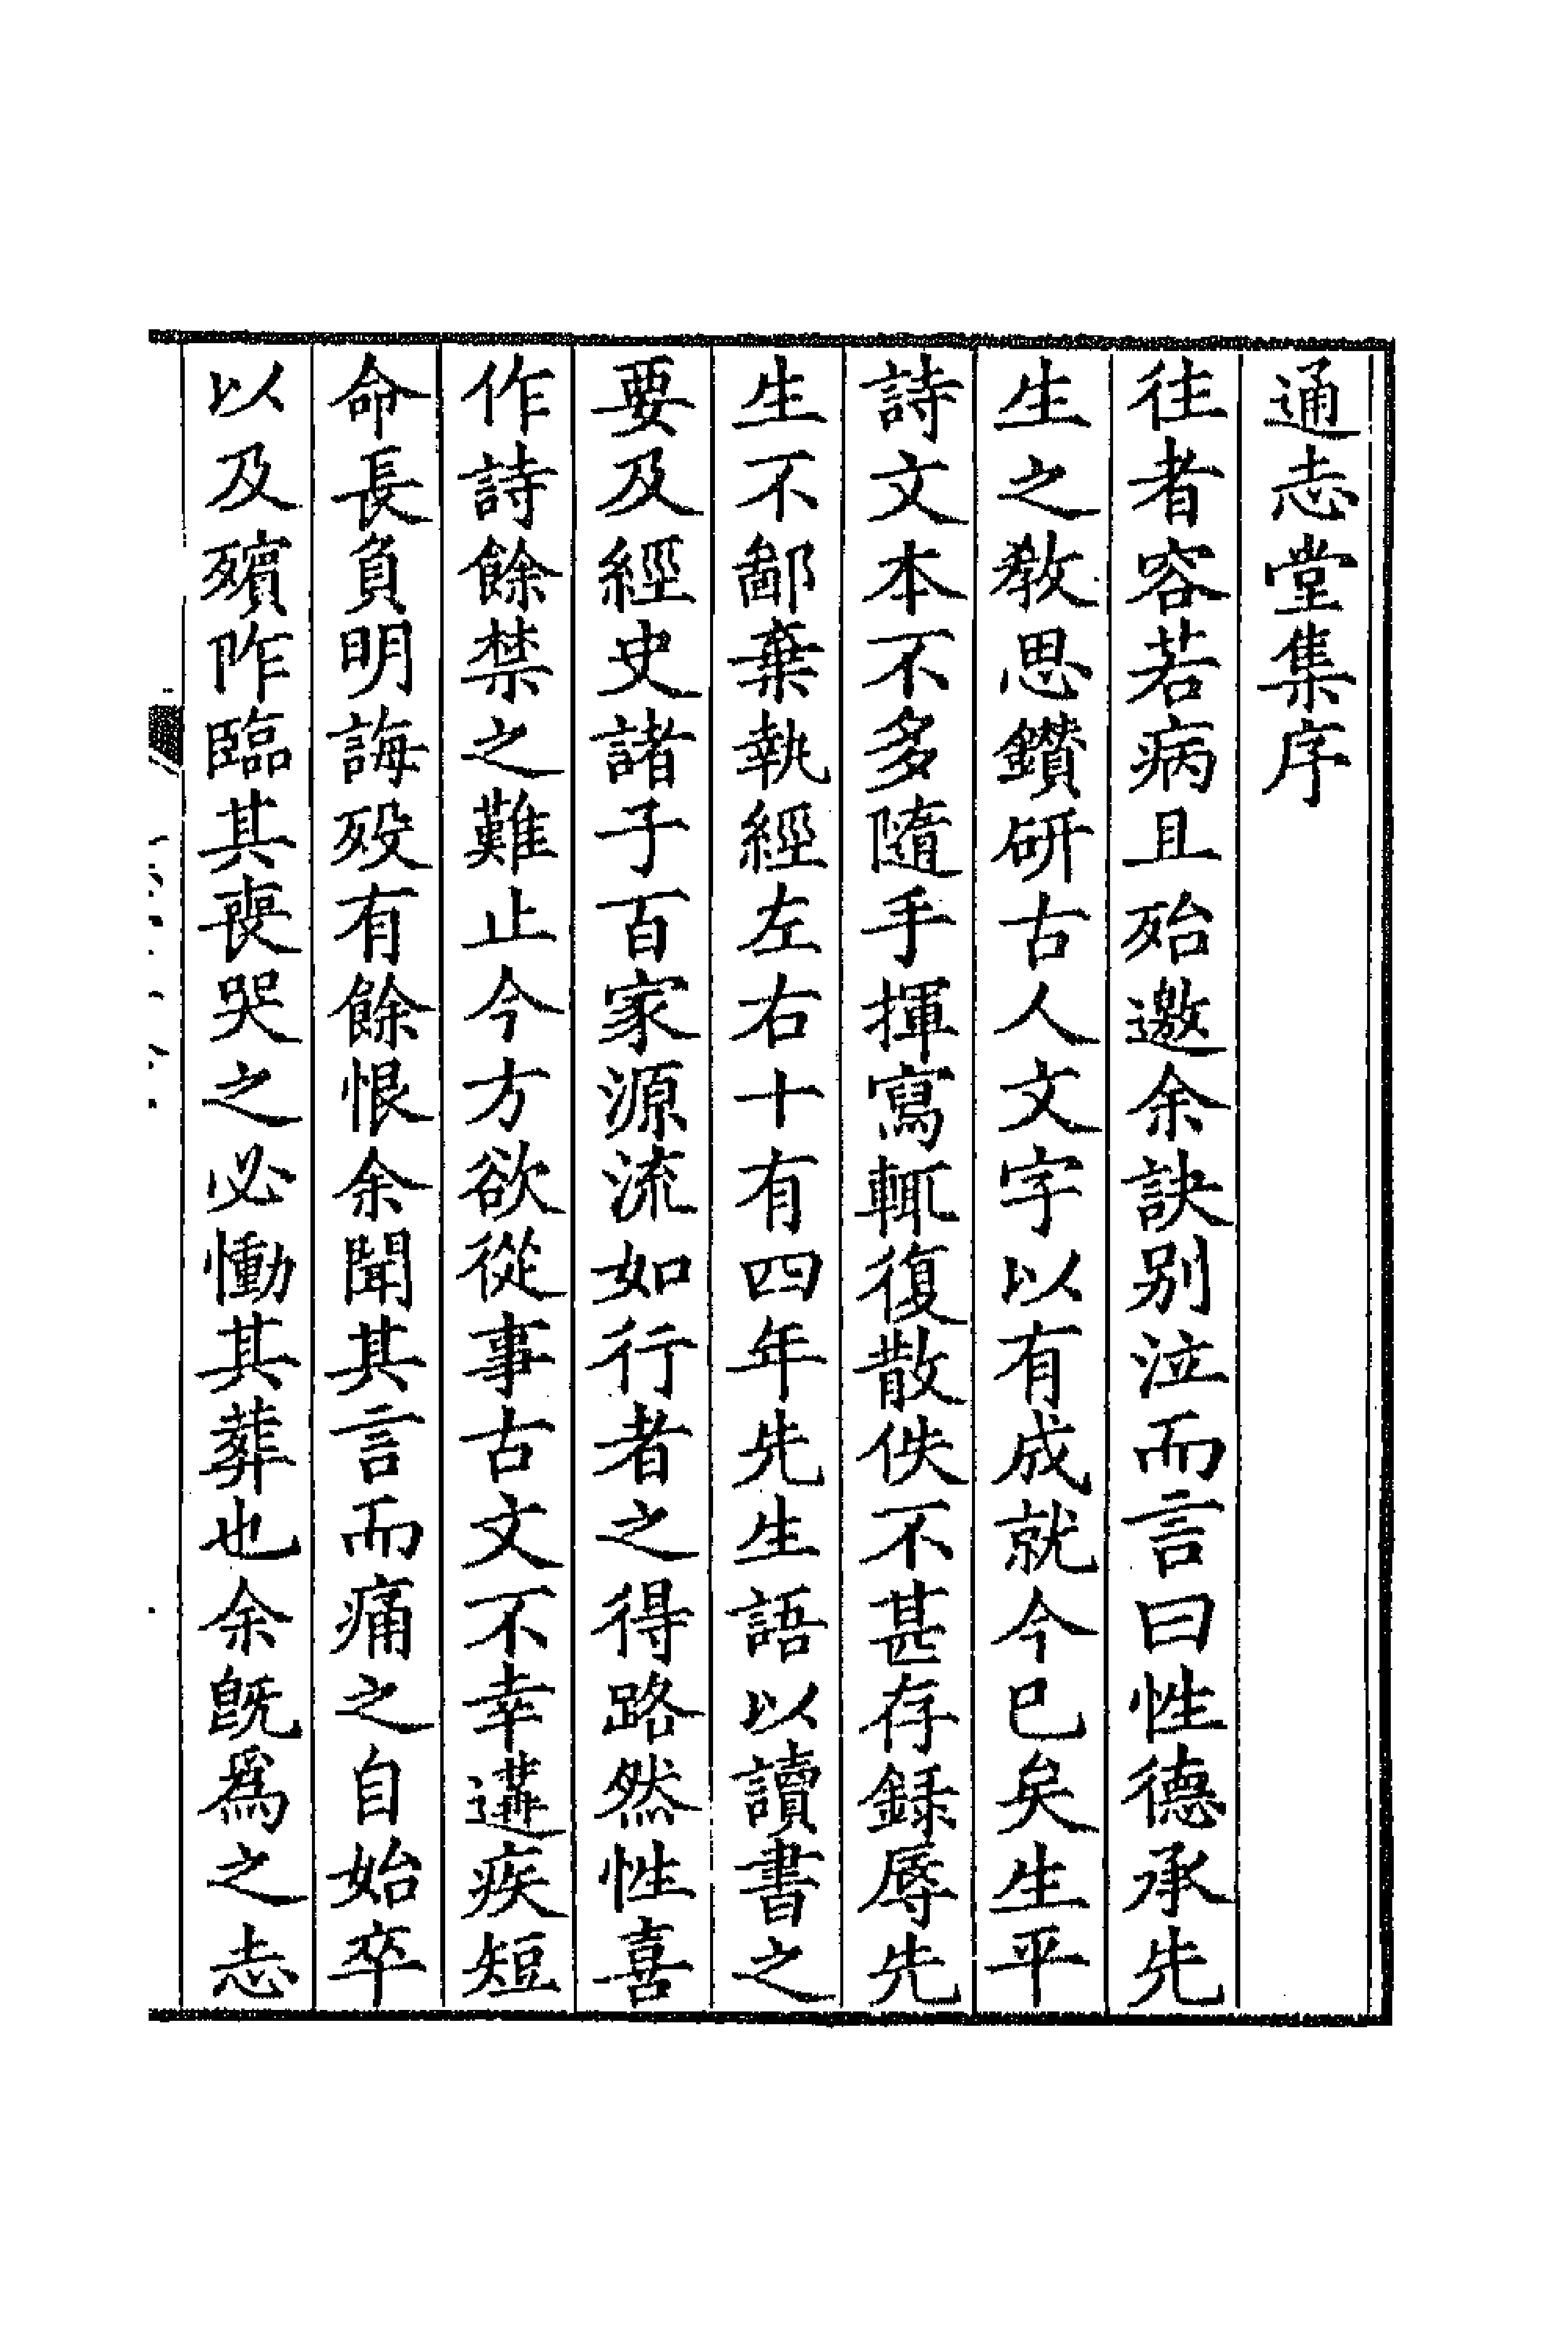 通志堂集序
徃者容若病且殆邀余訣别泣而言曰性德承先
生之教思鑽研古人文字以有成就今已矣生平
詩文本不多隨手揮寫輒復散佚不甚存録辱先
生不鄙棄執經左右十有四年先生語以讀書之
要及經史諸子百家源流如行者之得路然性喜
作詩餘禁之難止今方欲從事古文不幸遘疾短
命長負明誨殁有餘恨余聞其言而痛之自始卒
以及殯阼臨其喪哭之必慟其葬也余既爲之志